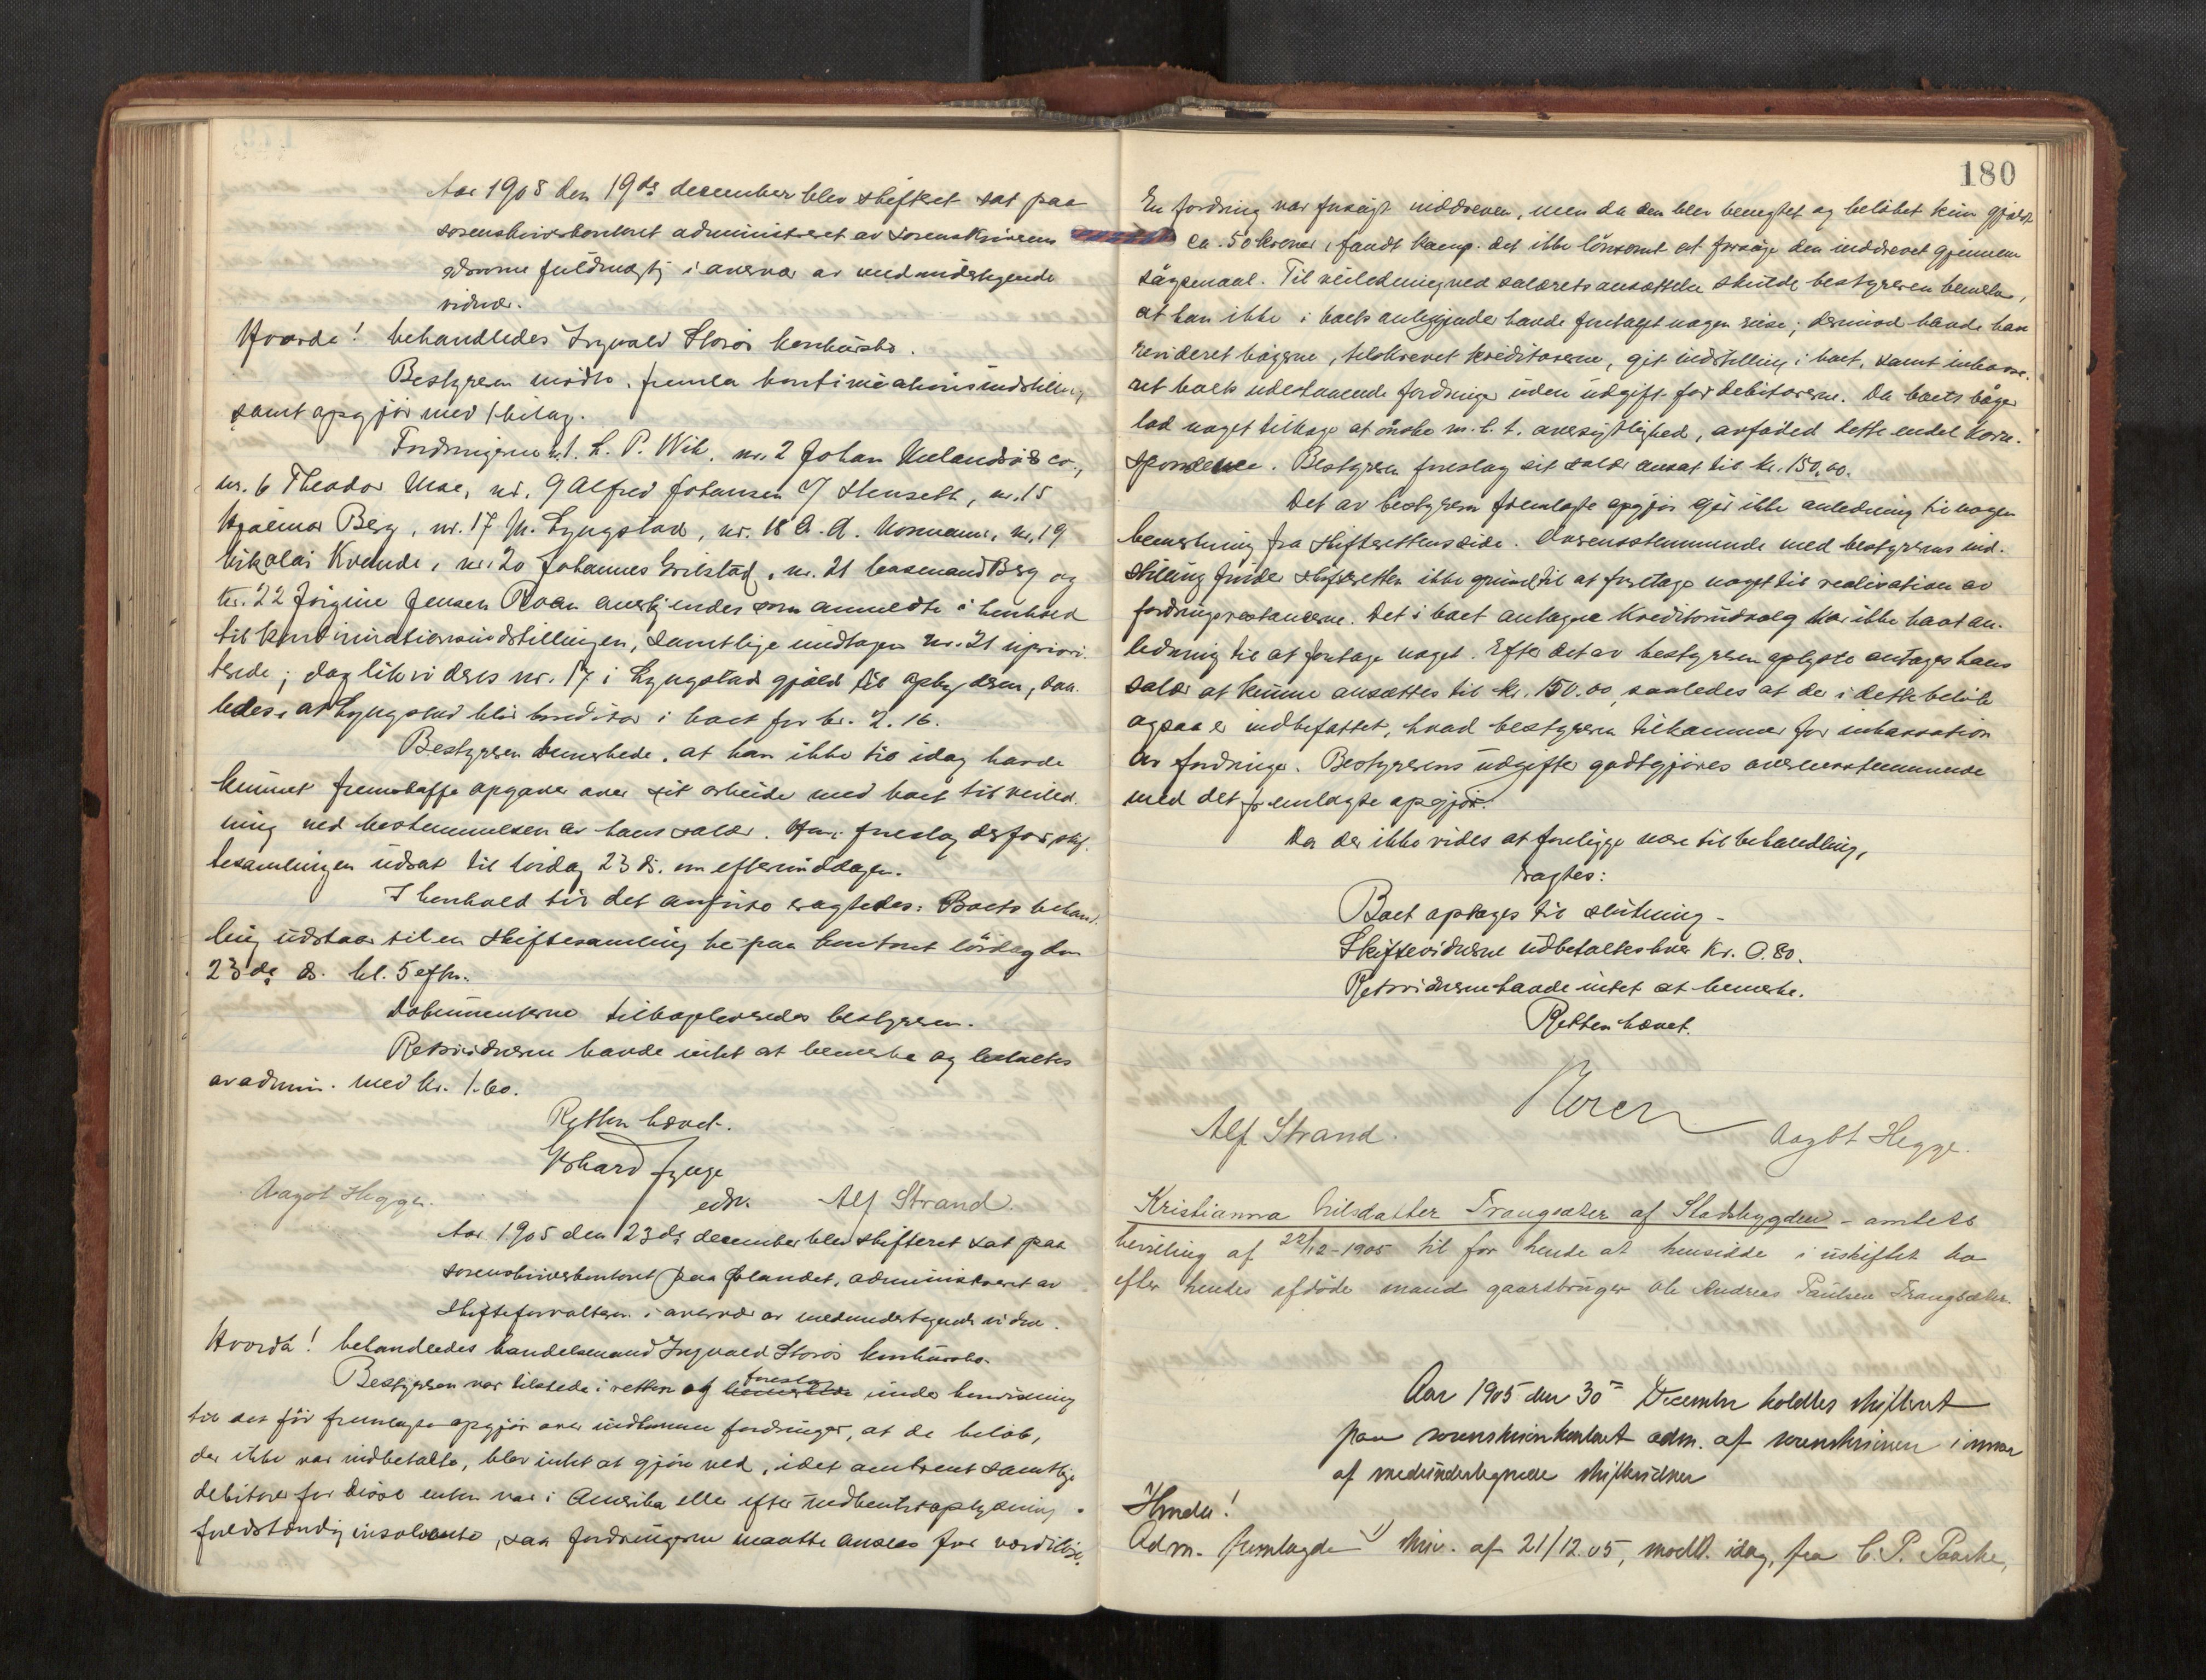 Aar 1905 den 19de december blev skifteret sat paa
sorenskriverkontoret administreret av sorenskriverens
edsvorne fuldmægtig i overvær av medundertegnede
vidner.
Hvorda! behandledes Ingvald Storøs konkursbo.
Bestyreren mødte, fremla kontinuationsindstilling
samt opgjør med 1 bilag.
Fordringerne nr. 1. L. P. Wik, nr. 2 Johan & co.,
nr. 6 Theodor Moe, nr. 9 Alfred Johansen v/ Stenseth, nr. 15
Hjalmar Berg, nr. 17 M. Lyngstad, nr. 18 A. A. Mosmann, nr. 19
Nikolai Kvende, nr. 20 Johannes Grilstad, nr. 21 Lensmand Berg og
nr. 22 Jørgine Jensen Roan anerkjendes som anmeldte i henhold
til kontinuationsindstillingen, samtlige undtagen nr. 21 upriori-
terede; dog likvideres nr. 17 i Lyngstads gjæld til opbyderen, saa-
ledes, at Lyngstad blir kreditor i boet for kr. 2.16.
Bestyreren bemerkede, at han ikke til idag havde
kunnet fremskaffe opgaver over sit arbeide med boet til veiled-
ning ved bestemmelsen av hans salær. Han foreslog derfor skif-
tesamlingen udsat til lørdag 23 ds. om eftermiddagen.
I henhold til det anførte eragtedes: Boets behand-
ling udstaar til en skiftesamling her paa kontoret lørdag den
23de ds. kl. 5 efm.
Dokumenterne tilbageleveredes bestyreren.
Retsvidnerne havde intet at bemerke og betaltes
av admin. med kr. 1.60.
Retten hævet.
edsv.
Aagot Hegge. Alf Strand.
Aar 1905 den 23de december blev skifteret sat paa
sorenskriverkontoret paa Ørlandet, administreret av
skifteforvalteren i overvær av medundertegnede vidner.
Hvorda! behandledes handelsmand Ingvald Storøs konkursbo.
Bestyreren var tilstede i retten og bemerkede foreslog under henvisning
til det før fremlagte opgjør over indkomne fordringer, at de beløb,
der ikke var indbetalte, blev intet at gjøre ved, idet omtrent samtlige
debitorer for disse enten var i Amerika eller efter indhentet oplysning
fuldstændig insolvente, saa fordringerne maatte ansees for værdiløse.
180
En fordring var forsøgt inddreven, men da den blev benegtet og beløbet kun gjaldt
ca. 50 kroner, fandt komp. det ikke lønsomt at forsøge den inddrevet gjennem
søgsmaal. Til veiledning ved salærets ansættelse skulde bestyreren bemerke,
at han ikke i boets anliggender havde foretaget nogen reise; derimod havde han
revideret bøgerne, tilskrevet kreditorerne, git indstilling i boet, samt inkasse-
ret boets udestaaende fordringer uden udgift for debitorerne. Da boets bøger
lod noget tilbage at ønske m. h. t. oversigtlighed, avfødte dette endel korre-
spondence. Bestyreren foreslog sit salær ansat til kr. 150.00.
Det av bestyreren fremlagte opgjør gir ikke anledning til nogen
bemerkning fra skifterettens side. Overensstemmende med bestyrerens ind-
stilling finder skifteretten ikke grund til at foretage noget til realisation av
fordringsrestancerne. Det i boet antagne kreditorudvalg har ikke havt an-
ledning til at foretage noget. Efter det av bestyreren oplyste antages hans
salær at kunne ansættes til kr. 150.00, saaledes at der i dette beløb
ogsaa er indbefattet, hvad bestyreren tilkommer for inkassation
av fordringer. Bestyrerens udgifter godtgjøres overensstemmende
med det fremlagte opgjør.
Da der ikke vides at foreligge mere til behandling,
eragtes:
Boet optages til slutning.
Skiftevidnerne udbetaltes hver kr. 0.80.
Retsvidnerne havde intet at bemerke.
Retten hævet.
Alf Strand. Aagot Hegge.
Kristianna Nilsdatter Trangsæter af Stadsbygden - amtets
bevilling af 22/12-1905 til for hende at hensidde i uskiftet bo
efter hendes afdøde mand gaardbruger Ole Andreas Paulsen Trangsæter.
Aar 1905 den 30te December holdtes skifteret
paa sorenskriverkontoret adm. af sorenskriveren i nærvær
af medundertegnede skiftevidner
Hvorda!
Adm. fremlagde 1) skriv. af 21/12 05, modt. idag, fra C. P. Paasche,